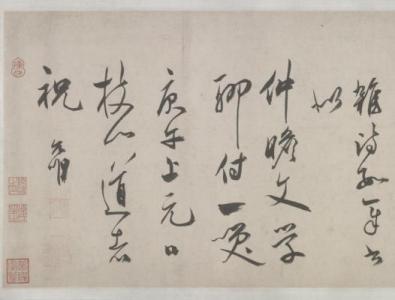 雜詩書
似
仲瞻文學
聊付一咲
庚午上元日
枝山道
祝允明